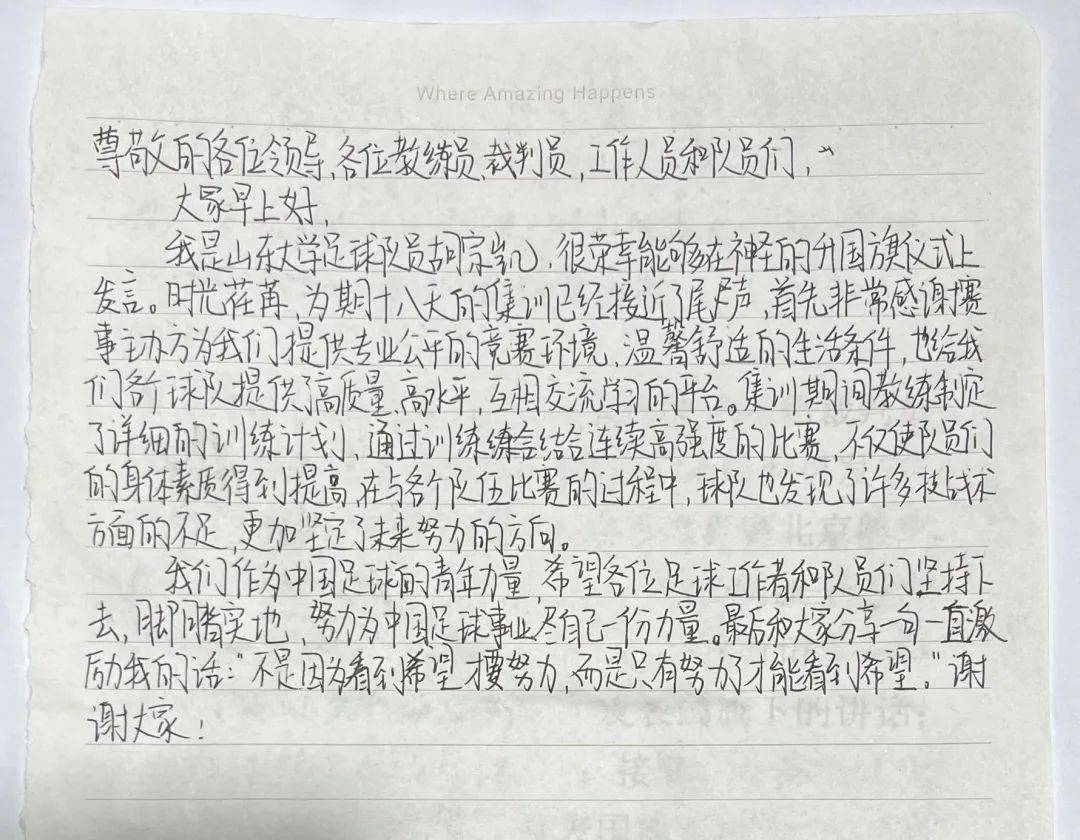 Where Amazing Happens
尊敬的各位领导、各位教练员、裁判员，工作人员和队员们，
大家早上好，
我是山东大学足球队员胡宗凯，很荣幸能够在神圣的升国旗仪式上
发言。时光荏苒，为期十八天的集训已经接近了尾声，首先非常感谢赛
事主办方为我们提供专业公平的竞赛环境，温馨舒适的生活条件，也给我
们各个球队提供了高质量、高水平，互相交流学习的平台。集训期间教练制定
了详细的训练计划，通过训练综合结合连续高强度的比赛，不仅使队员们
的身体素质得到提高，在与各个队伍比赛的过程中，球队也发现了许多技战术
方面的不足，更加坚定了未来努力的方向。
我们作为中国足球的青年力量，希望各位足球工作者和队员们坚持下
去，脚踏实地，努力为中国足球事业尽自己一份力量。最后和大家分享一句一直激
励我的话：“不是因为看到希望才要努力，而是只有努力了才能看到希望。”谢
谢大家！